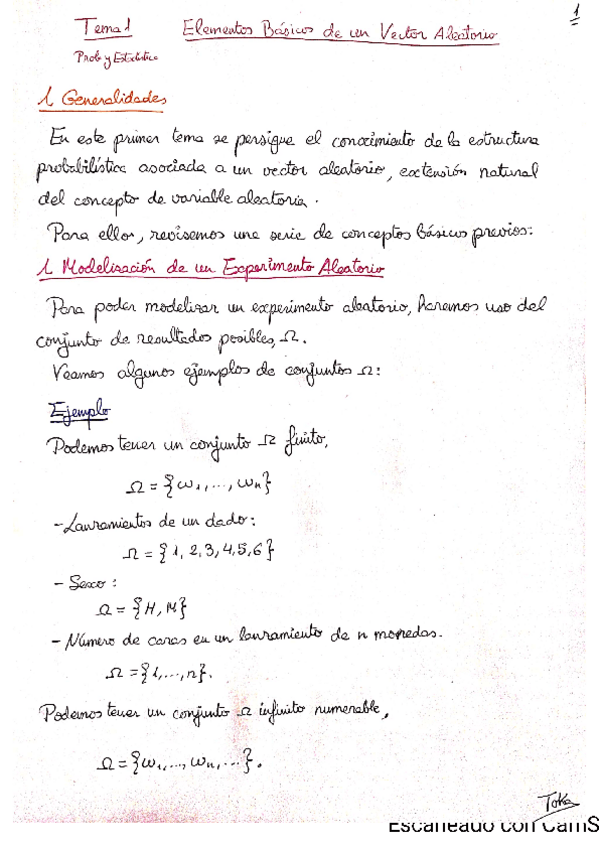 1
Tema 1 Elementos Básicos de un Vector Aleatorio
Prob y Estadística
1 Generalidades
En este primer tema se persigue el conocimiento de la estructura
probabilística asociada a un vector aleatorio, extensión natural
del concepto de variable aleatoria.
Para ello, revisemos una serie de conceptos básicos previos:
1. Modelización de un Experimento Aleatorio
Para poder modelizar un experimento aleatorio, haremos uso del
conjunto de resultados posibles, Ω.
Veamos algunos ejemplos de conjuntos Ω:
Ejemplo
Podemos tener un conjunto Ω finito,
Ω = {ω₁, ..., ωₙ}
- Lanzamientos de un dado:
Ω = {1, 2, 3, 4, 5, 6}
- Sexo:
Ω = {H, M}
- Número de caras en un lanzamiento de n monedas.
Ω = {1, ..., n}.
Podemos tener un conjunto Ω infinito numerable,
Ω = {ω₁, ..., ωₙ, ...}.
Toka
Escaneado con CamS